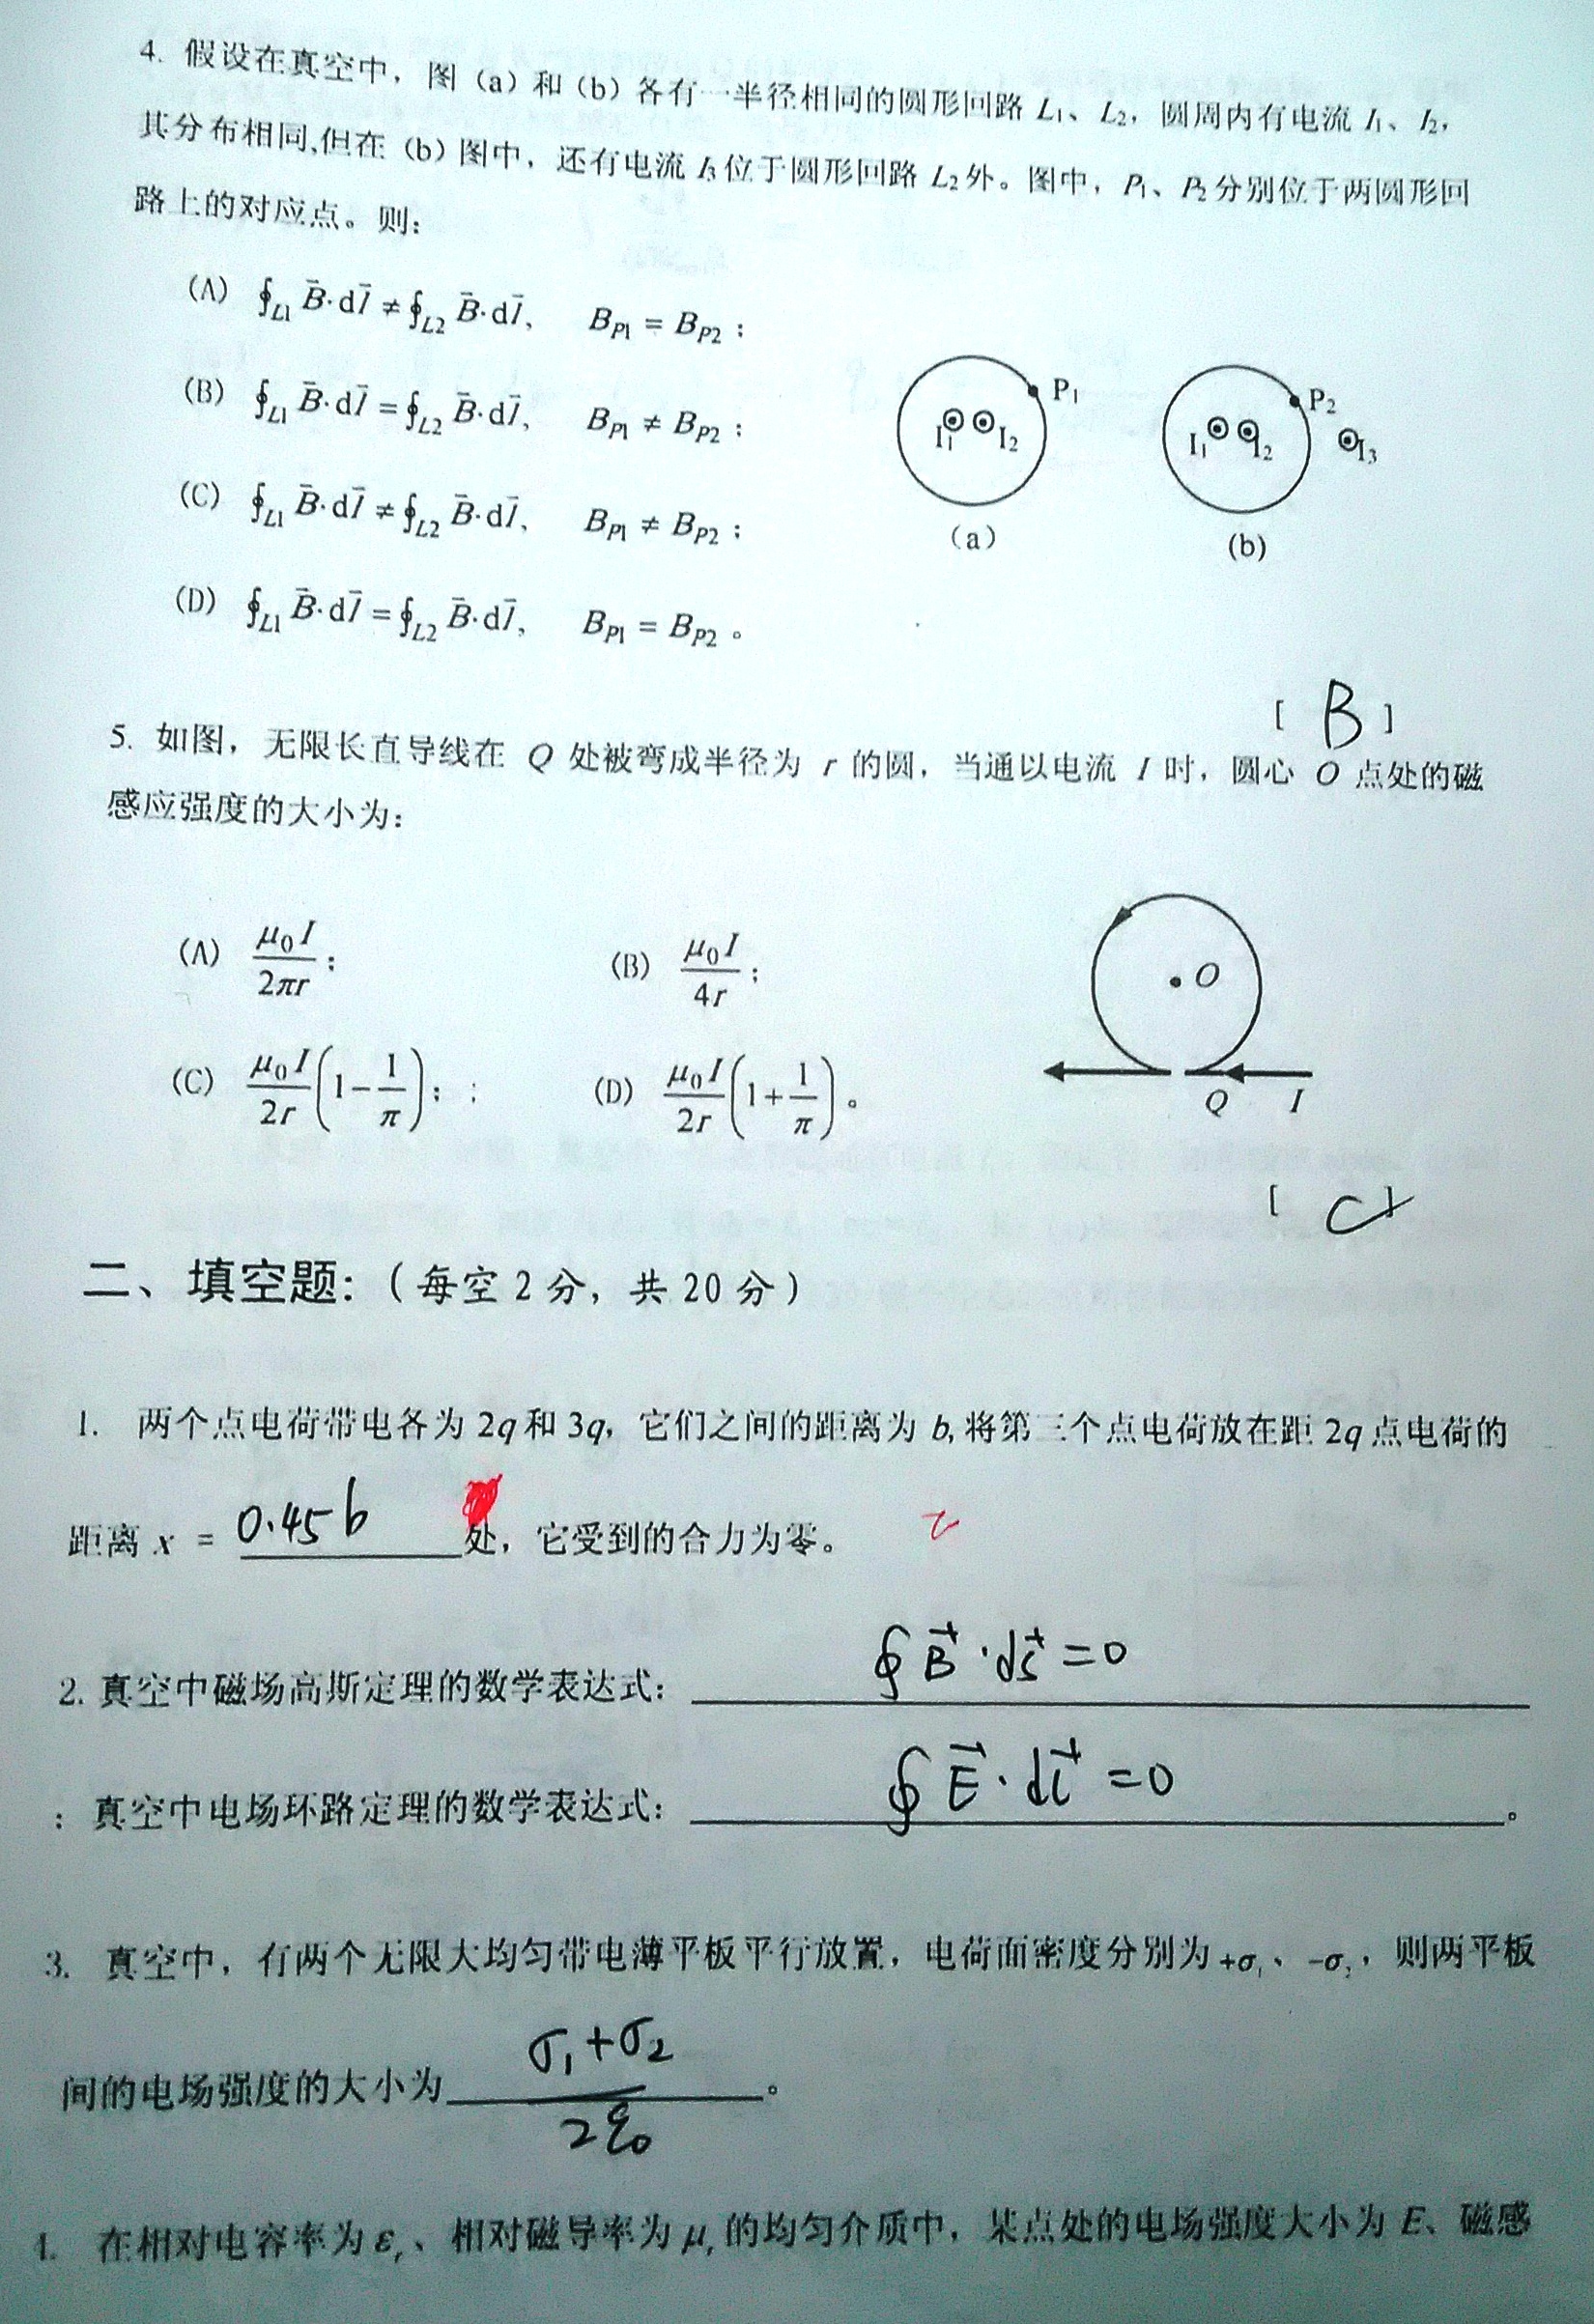 4. 假设在真空中，图（a）和（b）各有一半径相同的圆形回路 L₁、L₂，圆周内有电流 I₁、I₂，
其分布相同,但在（b）图中，还有电流 I₃位于圆形回路 L₂外。图中，P₁、P₂分别位于两圆形回
路上的对应点。则：
(A) ∮_{L1} B⃗·dl⃗ ≠ ∮_{L2} B⃗·dl⃗, B_{P1} = B_{P2}；
(B) ∮_{L1} B⃗·dl⃗ = ∮_{L2} B⃗·dl⃗, B_{P1} ≠ B_{P2}；
(C) ∮_{L1} B⃗·dl⃗ ≠ ∮_{L2} B⃗·dl⃗, B_{P1} ≠ B_{P2}；
(D) ∮_{L1} B⃗·dl⃗ = ∮_{L2} B⃗·dl⃗, B_{P1} = B_{P2}。
P₁
I₁ I₂
(a)
P₂
I₁ I₂ I₃
(b)
[ B ]
5. 如图，无限长直导线在 Q 处被弯成半径为 r 的圆，当通以电流 I 时，圆心 O 点处的磁
感应强度的大小为：
(A) μ₀I/2πr； (B) μ₀I/4r；
(C) μ₀I/2r(1−1/π)；； (D) μ₀I/2r(1+1/π)。
O
Q I
[ C ]
二、填空题：（每空 2 分，共 20 分）
1. 两个点电荷带电各为 2q 和 3q，它们之间的距离为 b,将第三个点电荷放在距 2q 点电荷的
距离 x = 0.45b 处，它受到的合力为零。
2. 真空中磁场高斯定理的数学表达式： ∮B⃗·ds⃗=0
；真空中电场环路定理的数学表达式： ∮E⃗·dl⃗=0 。
3. 真空中，有两个无限大均匀带电薄平板平行放置，电荷面密度分别为+σ₁、−σ₂，则两平板
间的电场强度的大小为 σ₁+σ₂/2ε₀ 。
4. 在相对电容率为εᵣ、相对磁导率为μᵣ的均匀介质中，某点处的电场强度大小为 E、磁感